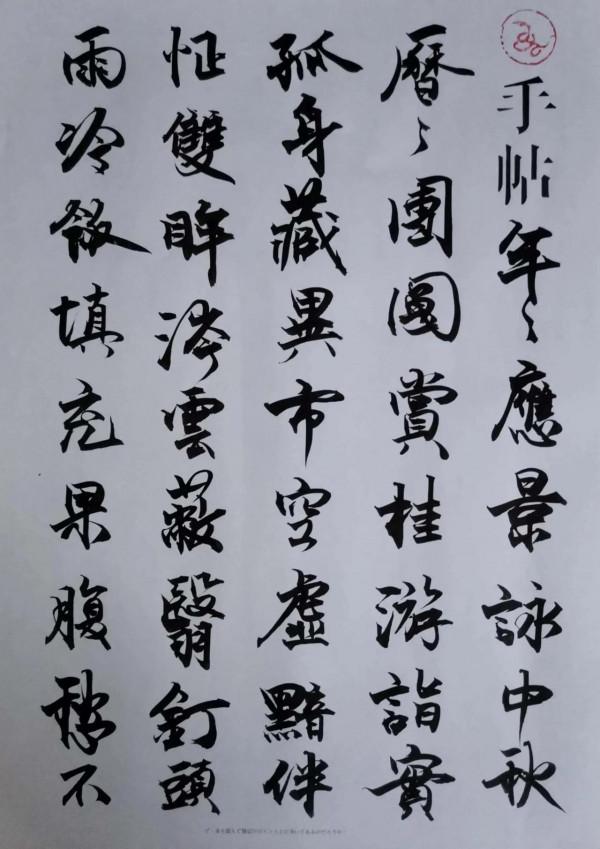 手帖年〻應景詠中秋
曆〻團圓賞桂游詣實
孤身藏異市空虛黯伴
怔雙眸涔雲蔽翳釘頭
雨冷飯填充果腹不